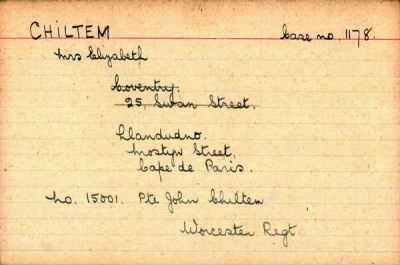 CHILTEM Case no. 1178.
Mrs Elizabeth
Coventry.
25, Swan Street.
Llandudno.
Mostyn Street,
Cafe de Paris.
No. 15001. Pte John Chiltem
Worcester Regt.